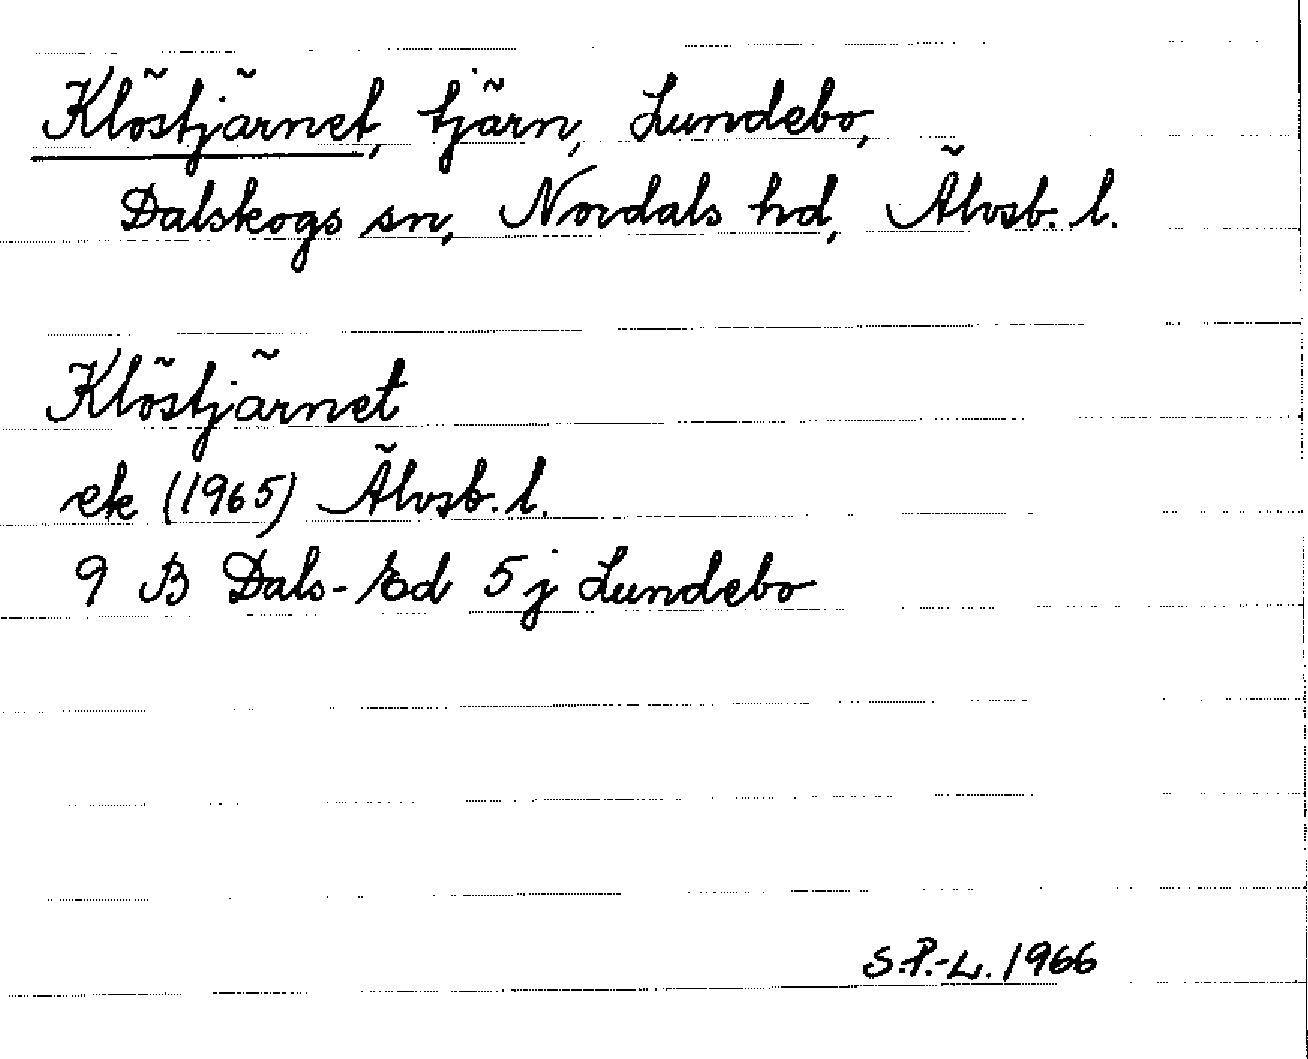 Klöstjärnet, tjärn, Lundebo,
Dalskogs sn, Nordals hd, Älvsb. l.
Klöstjärnet
ek (1965) Älvsb. l.
9 B Dals-Ed 5 j Lundebo
S.P.-L. 1966